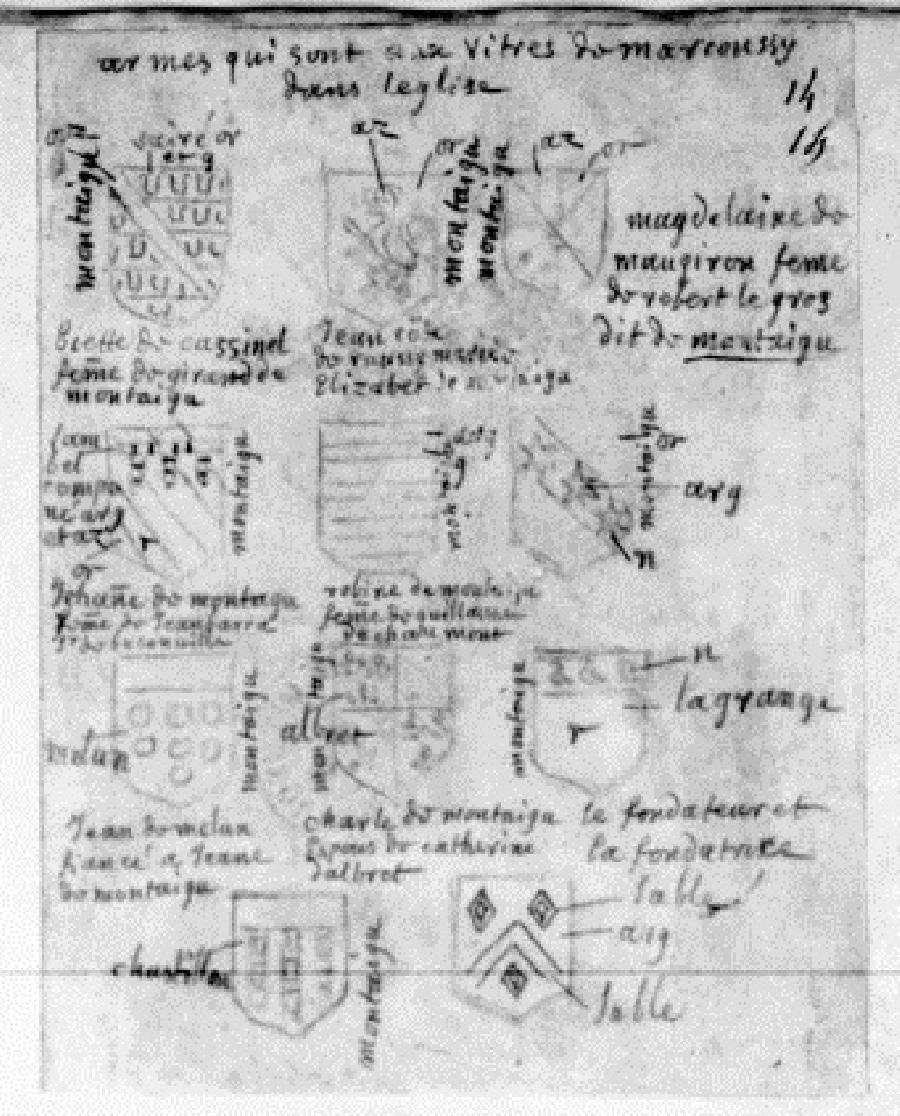 armes qui sont aux vitres de marcoussy
dans leglise
14
14
or
vairé or
montaigu
az
or
montaigu
montaigu
az
or
magdelaine de
maugiron feme
de robert le gros
dit de montaigu
biette de cassinel
feme de girard de
montaigu
Jean côte
de
Elizabet
lam
bel
compo
né arg
et az
r
montaigu
arg
montaigu
montaigu
or
arg
n
Jehane de montagu
feme de Jean
robine de montaigu
feme de guillaume
melun
montaigu
montaigu
albret
montaigu
n
lagrange
r
Jean de melun
fiancé a Jeane
de montaigu
charle de montaigu
Epous de catherine
dalbret
le fondateur et
la fondatrice
chastillon
montaigu
sable
arg
sable